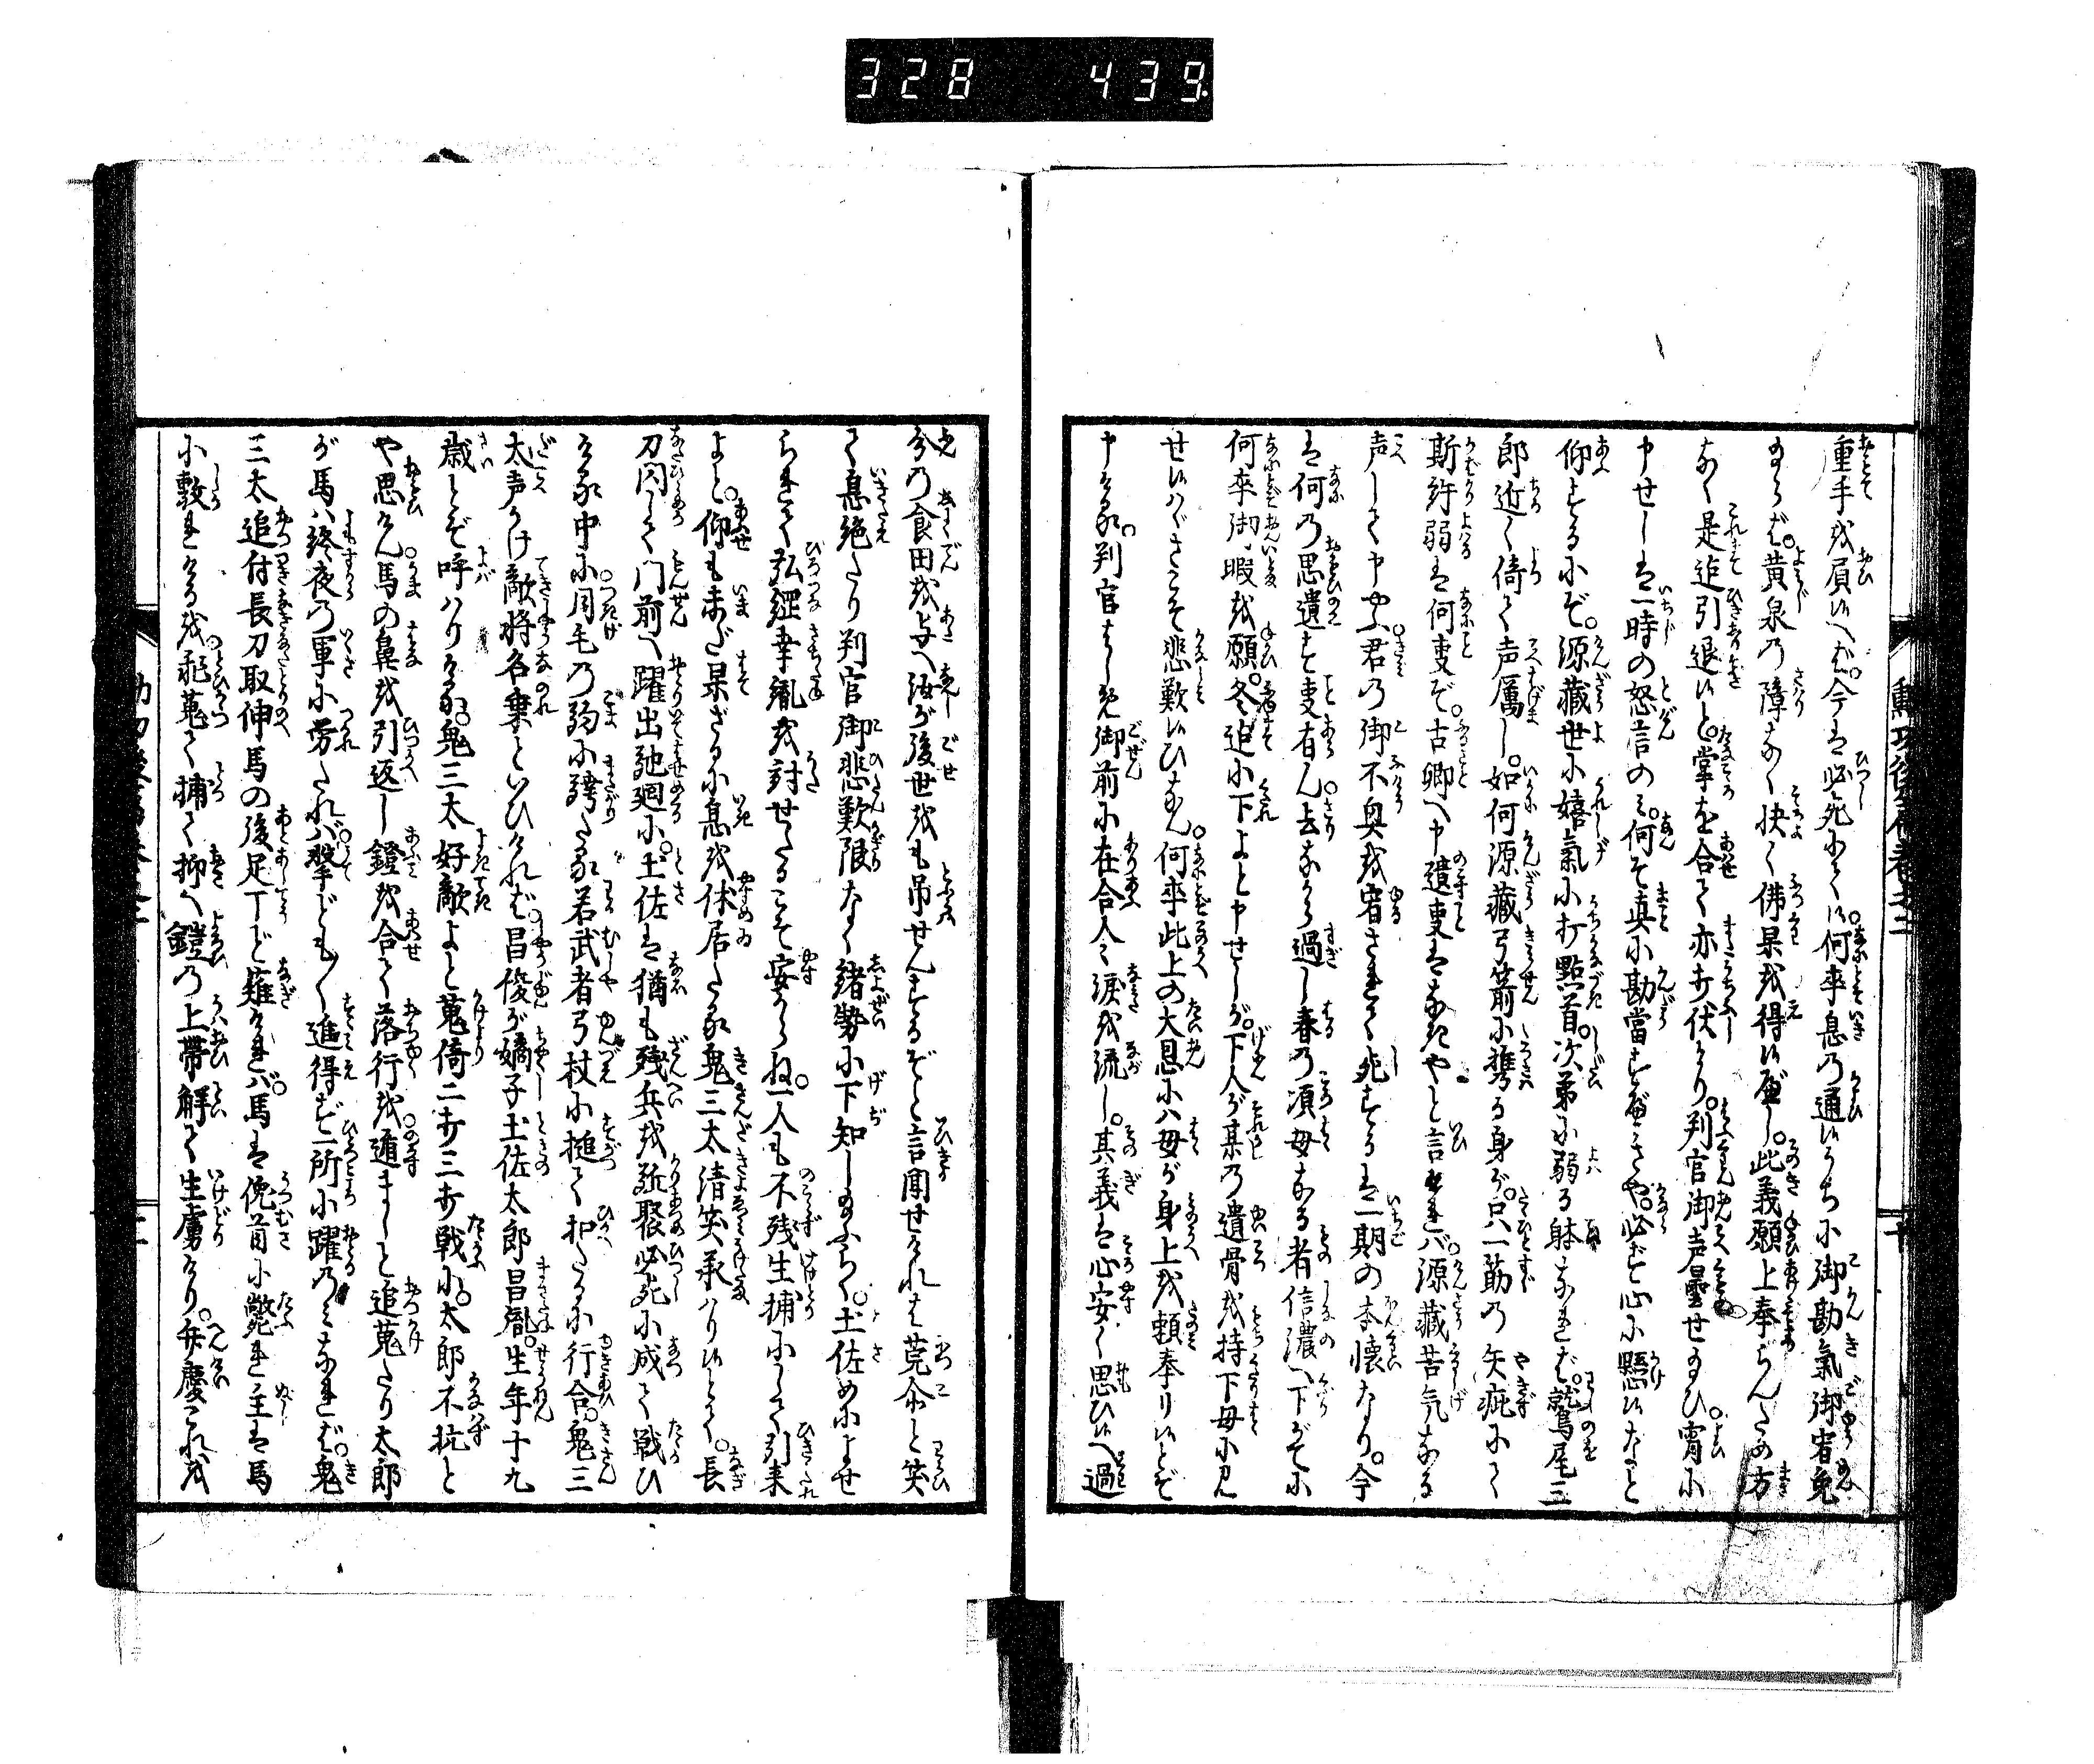 328 439
重手を負候へば。今は必死にて候。何卒息の通候うちに御勘氣御宥免
あらば。黄泉の障なく快く佛果を得候べし。此義願上奉らんため方
なく是迄引退候と。掌を合て亦打伏たり。判官御声曇せ給ひ。宵に
申せしは一時の怒言のみ。何そ真に勘當すべきや。必ず心に懸候なと
仰するにぞ。源藏世に嬉氣に打點首。次第に弱る躰なれば。鷲尾三
郎近く倚て声厲し。如何源藏弓箭に携る身が。只一筋の矢疵にて
斯許弱は何事ぞ。古郷へ申遺事はなきやと言ければ。源藏苦気なる
声して申やふ。君の御不興を宥されて死するは一期の本懐なり。今
は何の思遺す事有ん。去ながら過し春の頃母なる者信濃へ下がてに
何卒御暇を願。冬迄に下よと申せしが。下人が某の遺骨を持下母に見
せ候はゞさこそ悲歎候ひなん。何卒此上の大恩には母が身上を頼奉り候とぞ
申ける。判官はじめ御前に在合人々涙を流し。其義は心安く思ひ候へ過
分の食田を与へ汝が後世をも吊せんするぞと言聞せければ莞尓と笑
て息絶たり判官御悲歎限なく諸勢に下知し給ふらく。土佐めによせ
られて弘綱幸胤を討せたるこそ安からね。一人も不残生捕にして引来
よと。仰も未だ果ざるに息を休居たる鬼三太清笑承はり候とて。長
刀閃して门前へ躍出馳廻に。土佐は猶も残兵を駈聚必死に成て戦ひ
ける中に月毛の駒に跨たる若武者弓杖に縋て扣たるに行合。鬼三
太声かけ敵将名乗といひければ。昌俊が嫡子土佐太郎昌胤。生年十九
歳とぞ呼はりける。鬼三太好敵よと蒐倚二打三打戦に。太郎不抗と
や思けん。馬の鼻を引返し鐙を合て落行を。遁まじと追蒐たり太郎
が馬ハ終夜の軍に労たれバ。撃ども〱進得ず一所に躍のみなれば。鬼
三太追付長刀取伸馬の後足丁ど薙ければ。馬は俛首に斃れ主は馬
に敷れけるを。飛蒐て捕て抑へ鎧の上帶解て生虜けり。弁慶これを